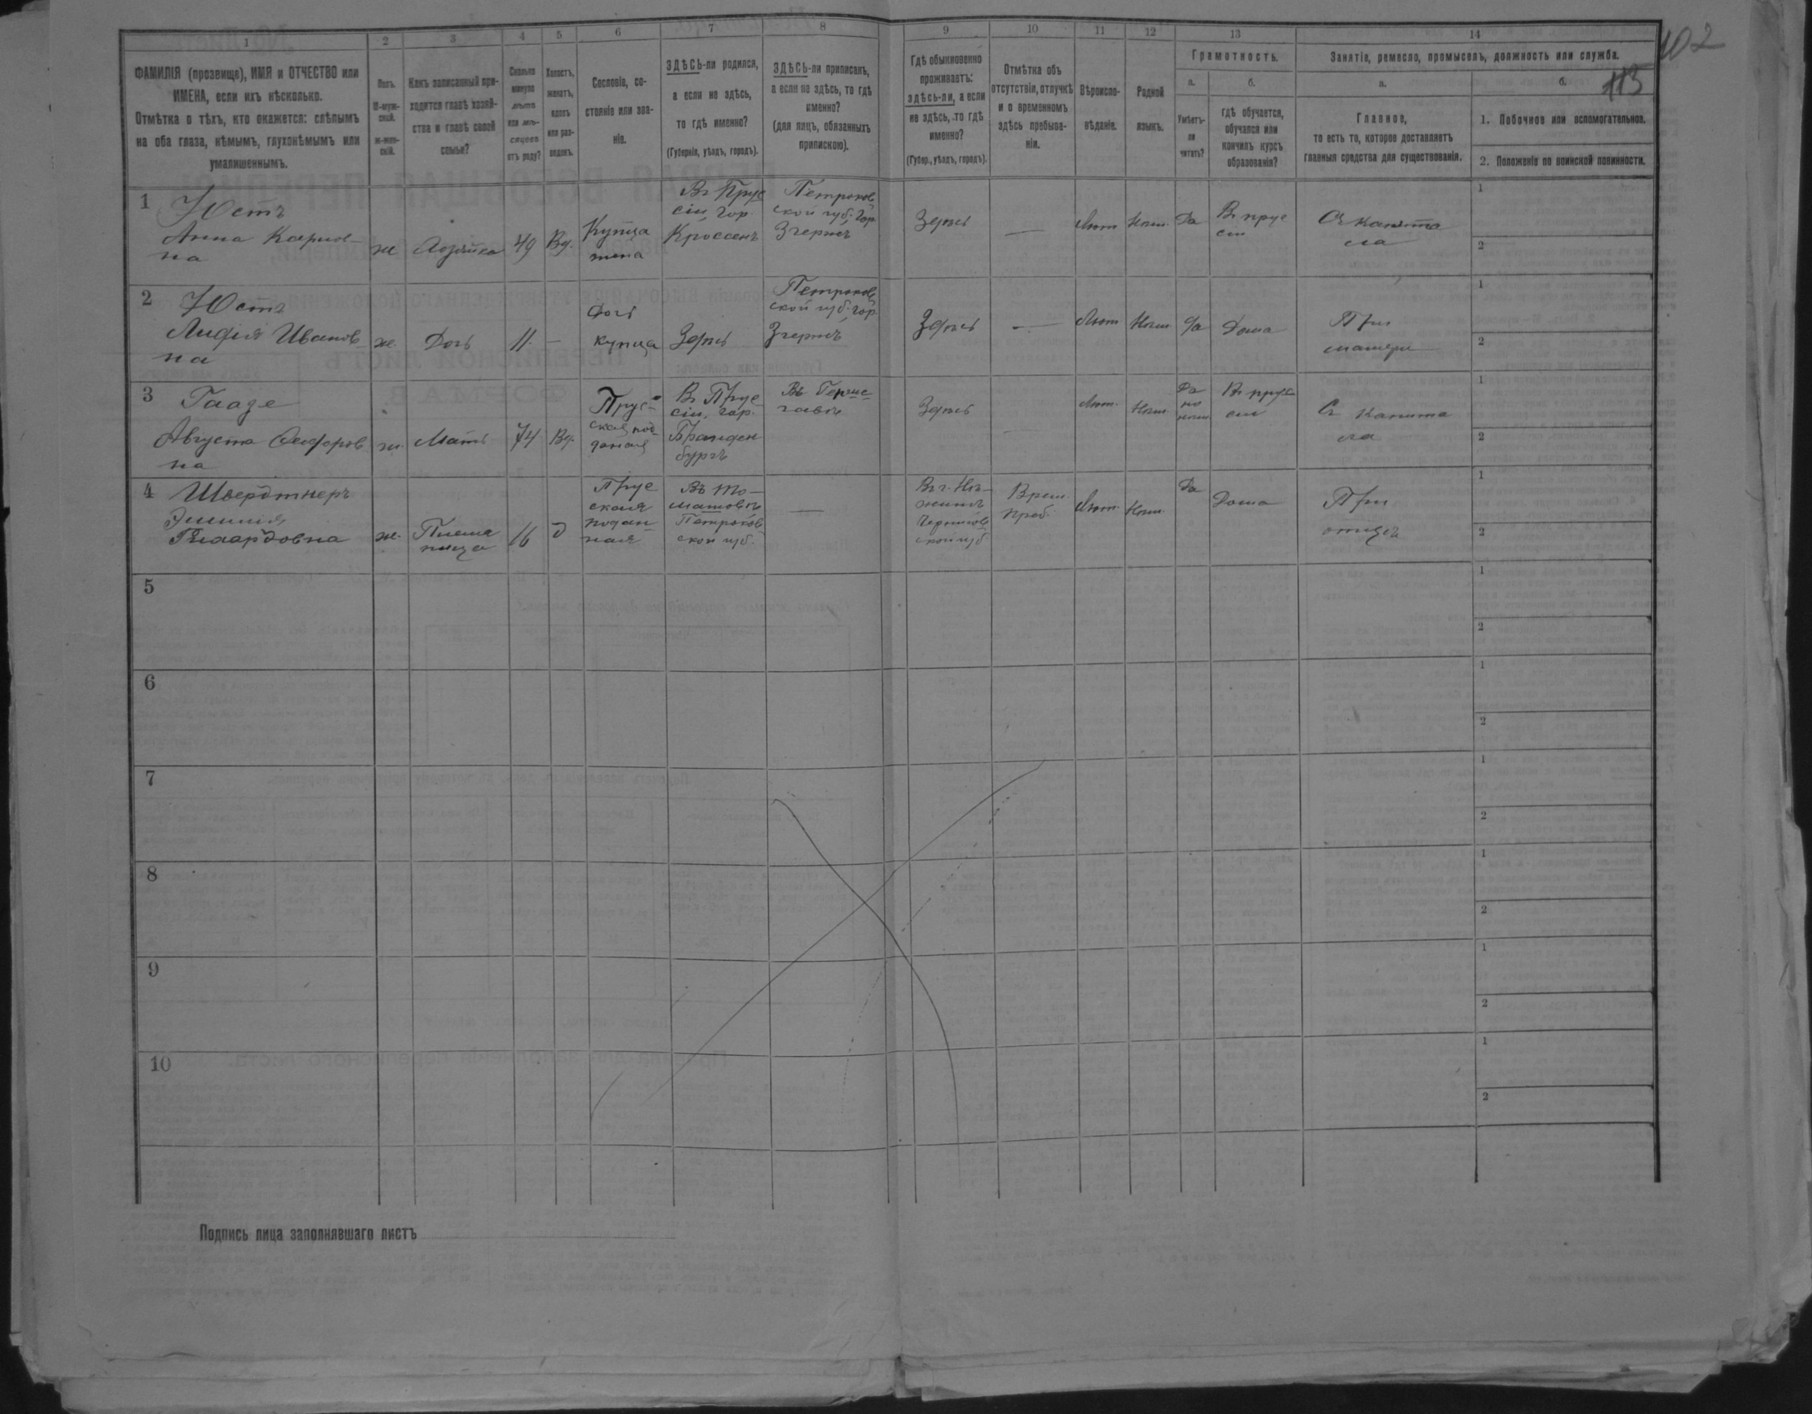 102
115
1 2 3 4 5 6 7 8 9 10 11 12 13 14
ФАМИЛІЯ (прозвище), ИМЯ и ОТЧЕСТВО или
ИМЕНА, если ихъ нѣсколько.
Отмѣтка о тѣхъ, кто окажется: слѣпымъ
на оба глаза, нѣмымъ, глухонѣмымъ или
умалишеннымъ.
Полъ.
М-муж-
ской.
ж-жен-
скій.
Какъ записанный при-
ходится главѣ хозяй-
ства и главѣ своей
семьи?
Сколько
минуло
лѣтъ
или мѣ-
сяцевъ
отъ роду?
Холостъ,
женатъ,
вдовъ
или раз-
веденъ.
Сословіе, со-
стояніе или зва-
ніе.
ЗДѢСЬ-ли родился,
а если не здѣсь,
то гдѣ именно?
(Губернія, уѣздъ, городъ).
ЗДѢСЬ-ли приписанъ,
а если не здѣсь, то гдѣ
именно?
(для лицъ, обязанныхъ
припискою).
Гдѣ обыкновенно
проживаетъ:
здѣсь-ли, а если
не здѣсь, то гдѣ
именно?
(Губер., уѣздъ, городъ).
Отмѣтка объ
отсутствіи, отлучкѣ
и о временномъ
здѣсь пребыва-
ніи.
Вѣроиспо-
вѣданіе.
Родной
языкъ.
Грамотность.
а.
Умѣетъ-
ли
читать?
б.
гдѣ обучается,
обучался или
кончилъ курсъ
образованія?
Занятіе, ремесло, промыселъ, должность или служба.
а.
Главное,
то есть то, которое доставляетъ
главныя средства для существованія.
б.
1. Побочное или вспомогательное.
2. Положеніе по воинской повинности.
1
Юстъ
Анна Карлов-
на
ж
Хозяйка
49
Вд.
Купца
жена
Въ Прус
сіи, гор.
Кроссенъ
Петроков
ской губ. гор
Згержъ
Здѣсь
—
Лют
Нѣм.
Да
Въ прус
сіи
Съ капита
ла
1
2
2
Юстъ
Лидія Иванов
на
ж.
Дочь
11.
—
Дочь
купца
Здѣсь
Петроков
ской губ. гор
Згержъ
Здѣсь
—
Лют
Нѣм
да
Дома
При
матери
1
2
3
Гаазе
Августа
на
ж.
Мать
74
Вд.
Прус-
ская под
даная
Въ Прус
сіи, гор.
Бранден
бургъ
Здѣсь
Лют.
Нѣм
Да
по
нѣм
Въ прус
сіи
Съ капита
ла
1
2
4
Швердтнеръ
Эмилія
ж.
Племя
ница
16
д
Прус
ская
подан-
ная
Въ То-
машовъ
Петроков
ской губ.
—
Врем
преб.
Лют.
Нѣм.
Да
Дома
При
отцѣ
1
2
5
1
2
6
1
2
7
1
2
8
1
2
9
1
2
10
1
2
Подпись лица заполнявшаго листъ